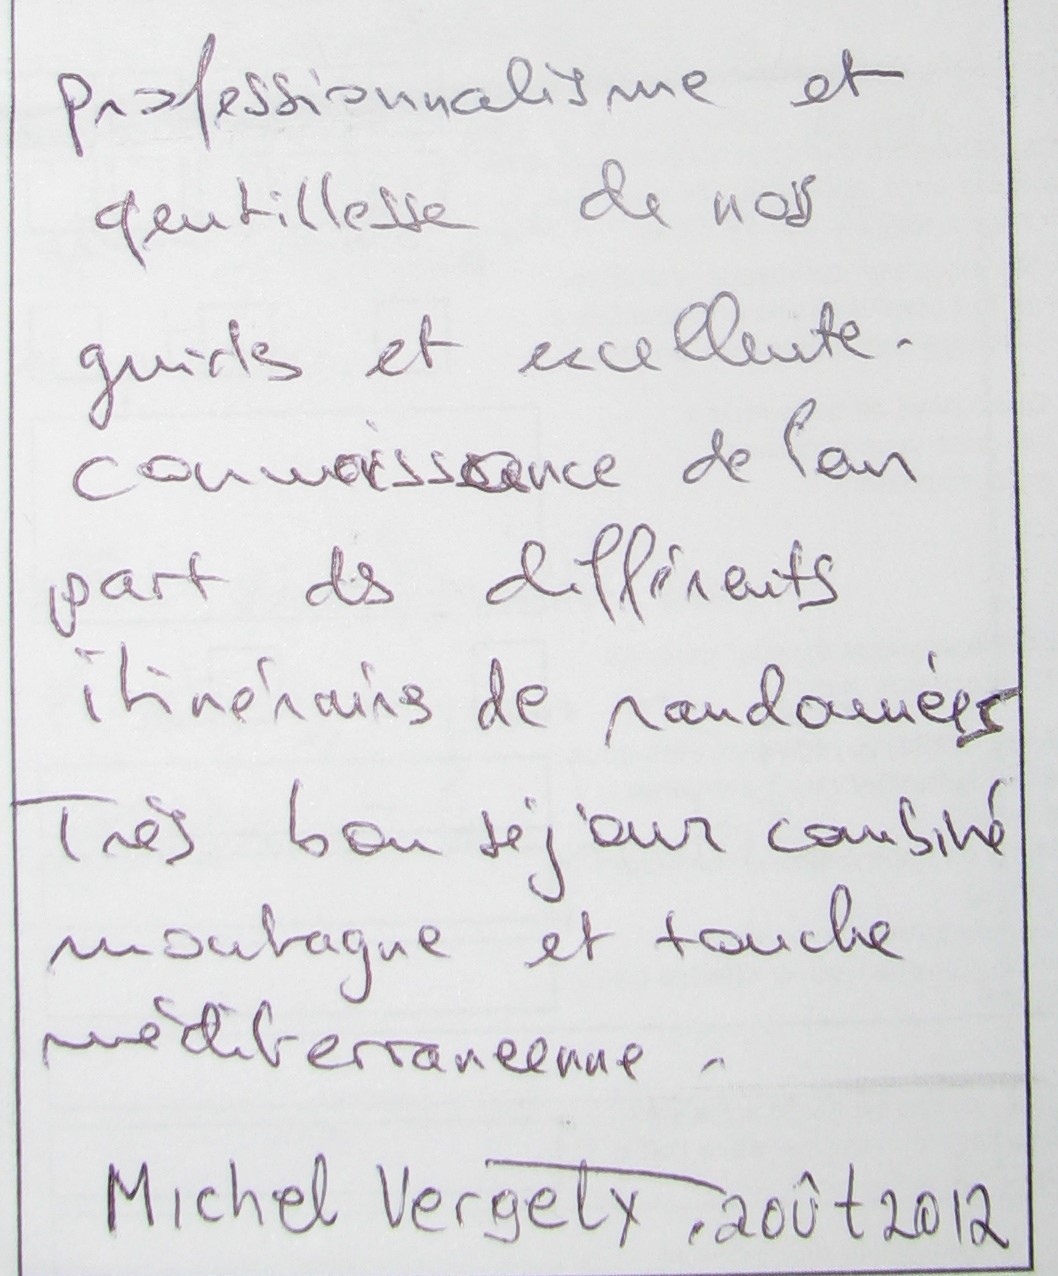 professionnalisme et
gentillesse de nos
guides et excellente.
connaissance de leur
part des différents
itinéraires de randonnées
Très bon séjour combiné
montagne et touche
méditerranéenne.
Michel Vergely. août 2012